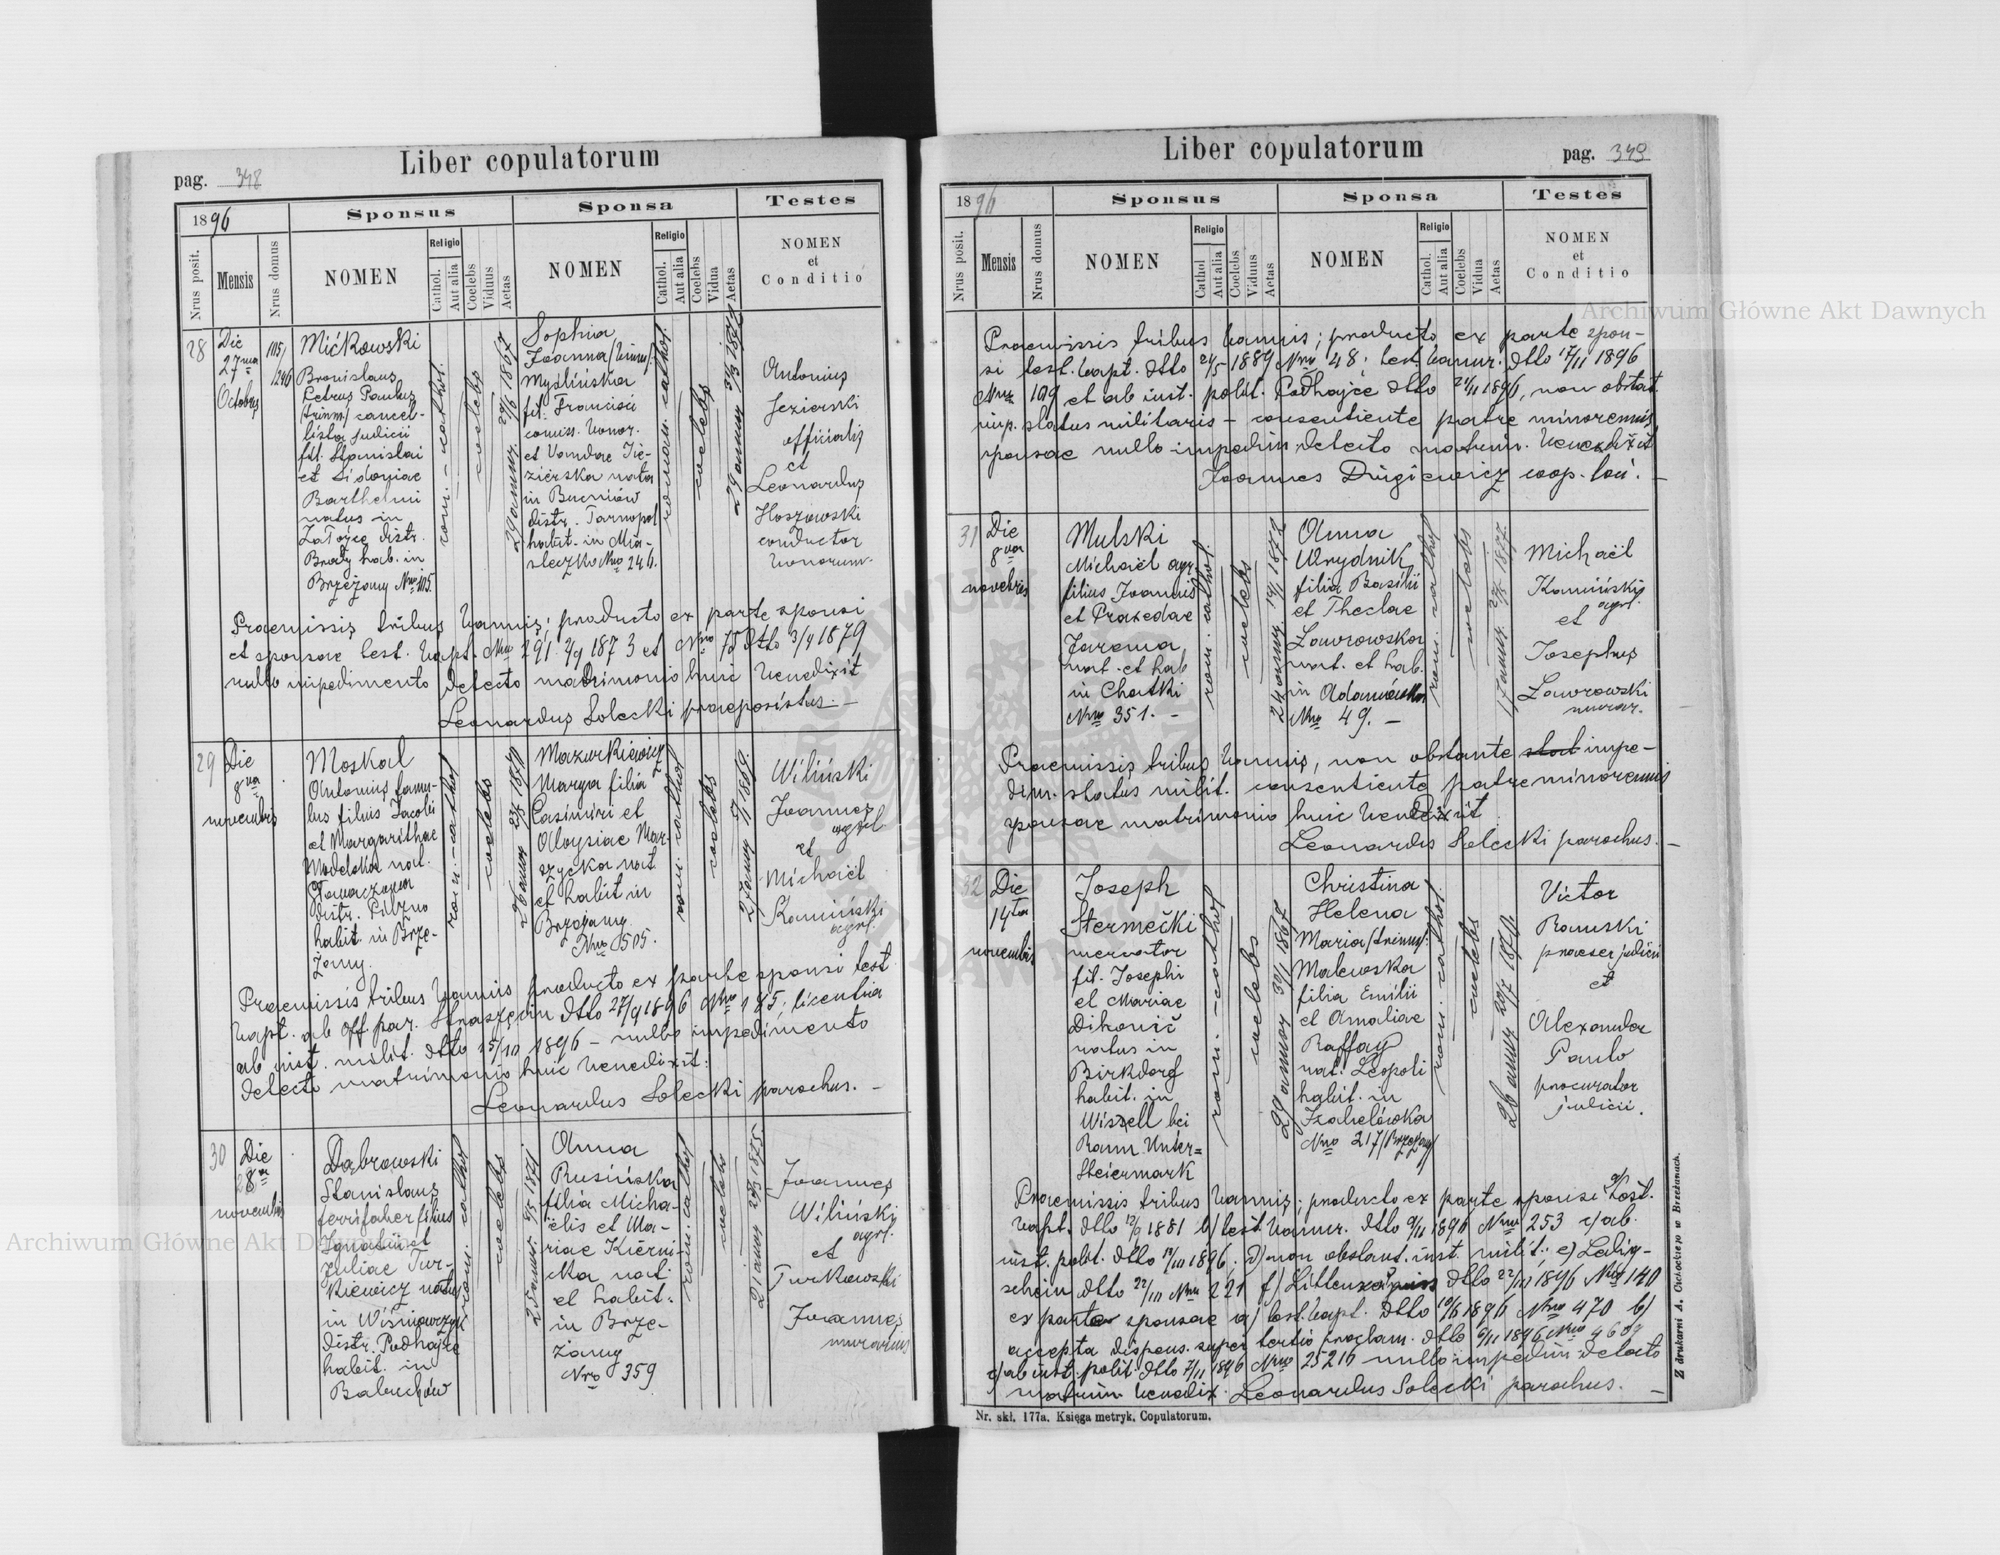 Liber copulatorum
pag. 348
1896
Sponsus
Sponsa
Testes
Nrus posit.
Mensis
Nrus domus
NOMEN
Religio
Cathol.
Aut alia
Coelebs
Viduus
Aetas
NOMEN
Religio
Cathol.
Aut alia
Coelebs
Vidua
Aetas
NOMEN
et
Conditio
28
Die
27ma
Octobris
1115/
1246
Mićkowski
Bronislaus
Petrus Paulus
/trinm/ cancel-
lista judicii
fil. Stanislai
et Sidoniae
Barthelmi
natus in
Załoźce distr.
Brody hab. in
Brzeżany Nro 1115.
rom.-cathol.
coelebs
29 annor. 29/6 1867
Sophia
Joanna /binm/
Myślińska
fil. Francisci
comiss. honor.
et Vandae Je-
zierska nata
in Bucniów
distr. Tarnopol
habit. in Mia-
steczko Nro 246.
roman. cathol.
coelebs
Antonius
Jezierski
officialis
et
Leonardus
Hoszowski
conductor
bonorum.
Praemissis tribus bannis; producto ex parte sponsi
et sponsae test. bapt. Nro 291 2/9 1873 et Nro 75 dtto 3/4 1879
nullo impedimento detecto matrimonio huic benedixit
Leonardus Solecki praepositus.-
29
Die
8va
novembris
Moskal
Antonius famu-
lus filius Jacobi
et Margarithae
Madelska nat.
distr. Pilzno
habit. in Brze-
żany.
rom.-cathol
coelebs
26 annor 23/5 1870
Mazurkiewicz
Marya filia
Casimiri et
Aloysiae Mar-
szycka nat
et habit in
Brzeżany.
Nro 505.
rom. cathol
coelebs
27 annor 5/7 1869.
Wiliński
Joannes
agricol
et
Michaël
Kamiński
agrl.
Praemissis tribus bannis producto ex parte sponsi test
bapt. ab off par. Straszęcin dtto 27/9 1896 Nro 185; licentia
ab inst. milit. dtto 15/10 1896 – nullo impedimento
detecto matrimonio huic benedixit:
Leonardus Solecki parochus.-
30
Die
8va
novembris
Dąbrowski
Stanislaus
ferrifaber filius
Ignatii et
Juliae Tur-
kiewicz natus
in Wiśniowczyk
distr. Podhajce
habit. in
Babuchów
rom. cathol
coelebs
25 annor. 6/5 1871
Anna
Rusińska
filia Micha-
ëlis et Ma-
riae Kierni-
cka nat.
et habit.
in Brze-
żany
Nro 359
rom. cathol
coelebs
21 annor 20/3 1875.
Joannes
Wiliński
agrl.
et
Turkowski
Joannes
murarius
Liber copulatorum
pag. 349
1896
Sponsus
Sponsa
Testes
Nrus posit.
Mensis
Nrus domus
NOMEN
Religio
Cathol
Aut alia
Coelebs
Viduus
Aetas
NOMEN
Religio
Cathol.
Aut alia
Coelebs
Vidua
Aetas
NOMEN
et
Conditio
Praemissis tribus bannis; producto ex parte spon-
si test. bapt. dtto 24/5 1889 Nro 48; test. bannor. dtto 17/11 1896
Nro 109 et ab inst. polit. Podhajce dtto 21/11 1896, non obstat.
imp. status militaris – consentiente patre minorennis
sponsae nullo impedim. detecto matrim. benedixit
Joannes Długiewicz coop. loci.-
31
Die
8va
novembris
Mulski
Michaël agr.
filius Joannis
et Praxedae
Jarema
nat. et hab
in Chatki
Nro 351.-
rom. cathol.
coelebs
24 annor 19/1 1872
Anna
Urydnik
filia Basilii
et Theclae
Lawrowska
nat. et hab.
in Adamówka
Nro 49.-
rom. cathol
coelebs
Michaël
Kamiński
agrl.
et
Josephus
Lawrowski
murar.
Praemissis tribus bannis, non obstante impe-
dim. status milit. consentiente patre minorennis
sponsae matrimonio huic benedixit
Leonardus Solecki parochus.-
32
Die
14ta
novembris
Joseph
Stermečki
mercator
fil. Josephi
et Mariae
Dikonič
natus in
Birkdorf
habit. in
Wisell bei
Rann Unter=
Steiermark
rom.-cathol
coelebs
29 annor 30/1 1867
Christina
Helena
Maria/trinm/
Malewska
filia Emilii
et Amaliae
Raffay
nat. Leopoli
habit. in
Izabelówka
Nro 217/Brzeżany/
rom. cathol.
coelebs
26 annor 20/7 1870.
Victor
Ramski
praeses judicii
et
Alexander
Paulo
procurator
judicii.
Praemissis tribus bannis; producto ex parte sponsi a/ test.
bapt. dtto 12/9 1881 b/ test. bannor. dtto 9/11 1896 Nro 253 c/ ab.
inst. polit. dtto 10/10 1896; d/ non obstant. inst. milit.; e/ Ledig-
schein dtto 22/10 Nro 221 f/ Sittenzeugnis dtto 22/10 1896 Nro 140
ex parte sponsae a/ test. bapt. dtto 10/6 1896 Nro 470 b/
accepta dispens. super tertio proclam. dtto 6/11 1896 Nro 4609
c/ ab inst. polit. dtto 7/11 1896 Nro 25216 nullo impedim. detecto
matrim benedix. Leonardus Solecki parochus.-
Nr. skł. 177a. Księga metryk, Copulatorum.
Z drukarni A. Cichockiego w Brzeżanach.
Archiwum Główne Akt Dawnych
Archiwum Główne Akt Dawnych